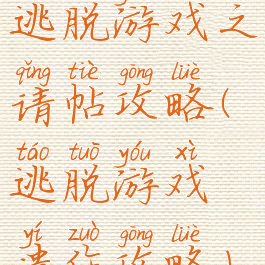 逃脱游戏之
qǐng tiè gōng lüè
请帖攻略(
táo tuō yóu xì
逃脱游戏
yí zuò gōng lüè
遗作攻略)